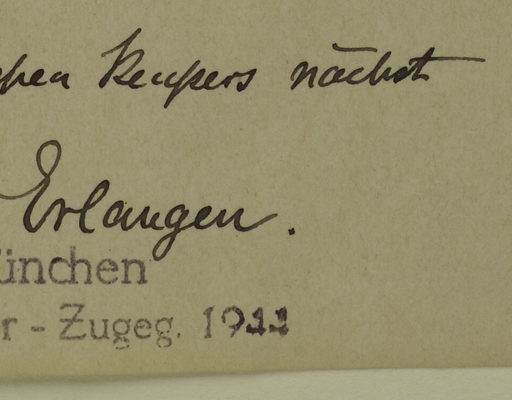 Keupers nächst
Erlangen.
ünchen
r - Zugeg. 1944